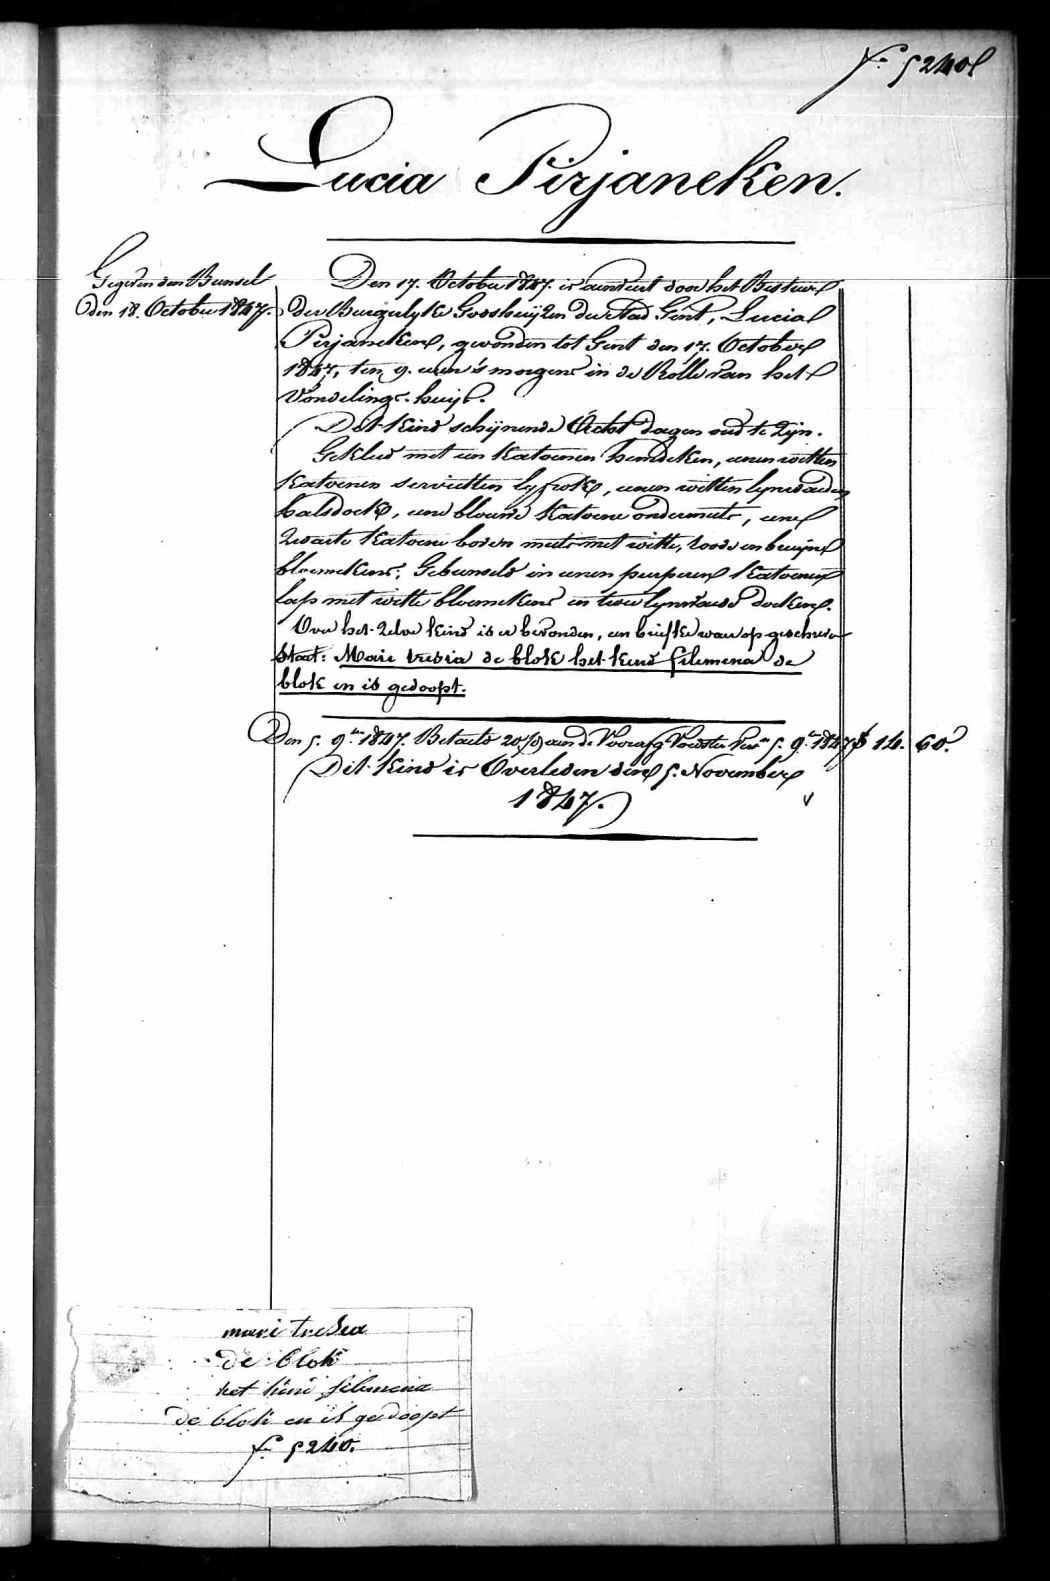 f.° 5240
Lucia Pirjaneken.
Gegeven den Bunsel
den 18. October 1847.
Den 17. October 1847. is aenveert door het Bestuer
der Burgerlyke Godshuijzen der Stad Gent, Lucia
Pirjaneken, gevonden tot Gent den 17. October
1847, ten 9. uren 's morgens in de Rolle van het
Vondelings-huijs.
Dit kind schijnende Acht dagen oud te zijn.
Gekleed met een katoenen hemdeken, eenen witten
katoenen servietten lyfrok, eenen witten lynwaeden
halsdoek, eene blauwe katoene ondermuts, eene
zwarte katoene boven muts met witte, roode en bruijne
bloemekens, Gebunseld in eenen purperen katoenen
lap met witte bloemekens en twee lynwaede doeken.
Over het zelve kind is er bevonden, een briefke waer op geschreven
staet: Marie tresia de blok het kind filemena de
blok en is gedoopt.
Den 5. 9.bre 1847. Betaeld aen de Voedster 5. 9.bre 1847 14. 60.
Dit kind is Overleden den 5. November
1847.
mari tresia
de blok
het kind filemena
de blok en is gedoopt
f.° 5240.